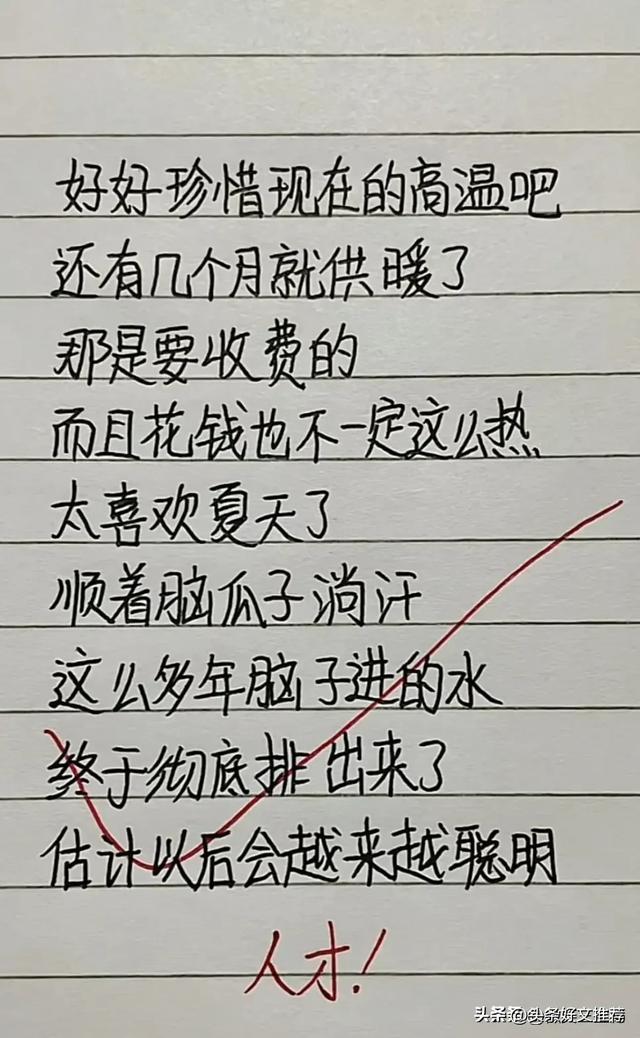 好好珍惜现在的高温吧
还有几个月就供暖了
那是要收费的
而且花钱也不一定这么热
太喜欢夏天了
顺着脑瓜子淌汗
这么多年脑子进的水
终于彻底排出来了
估计以后会越来越聪明
人才!
头条 @头条好文推荐